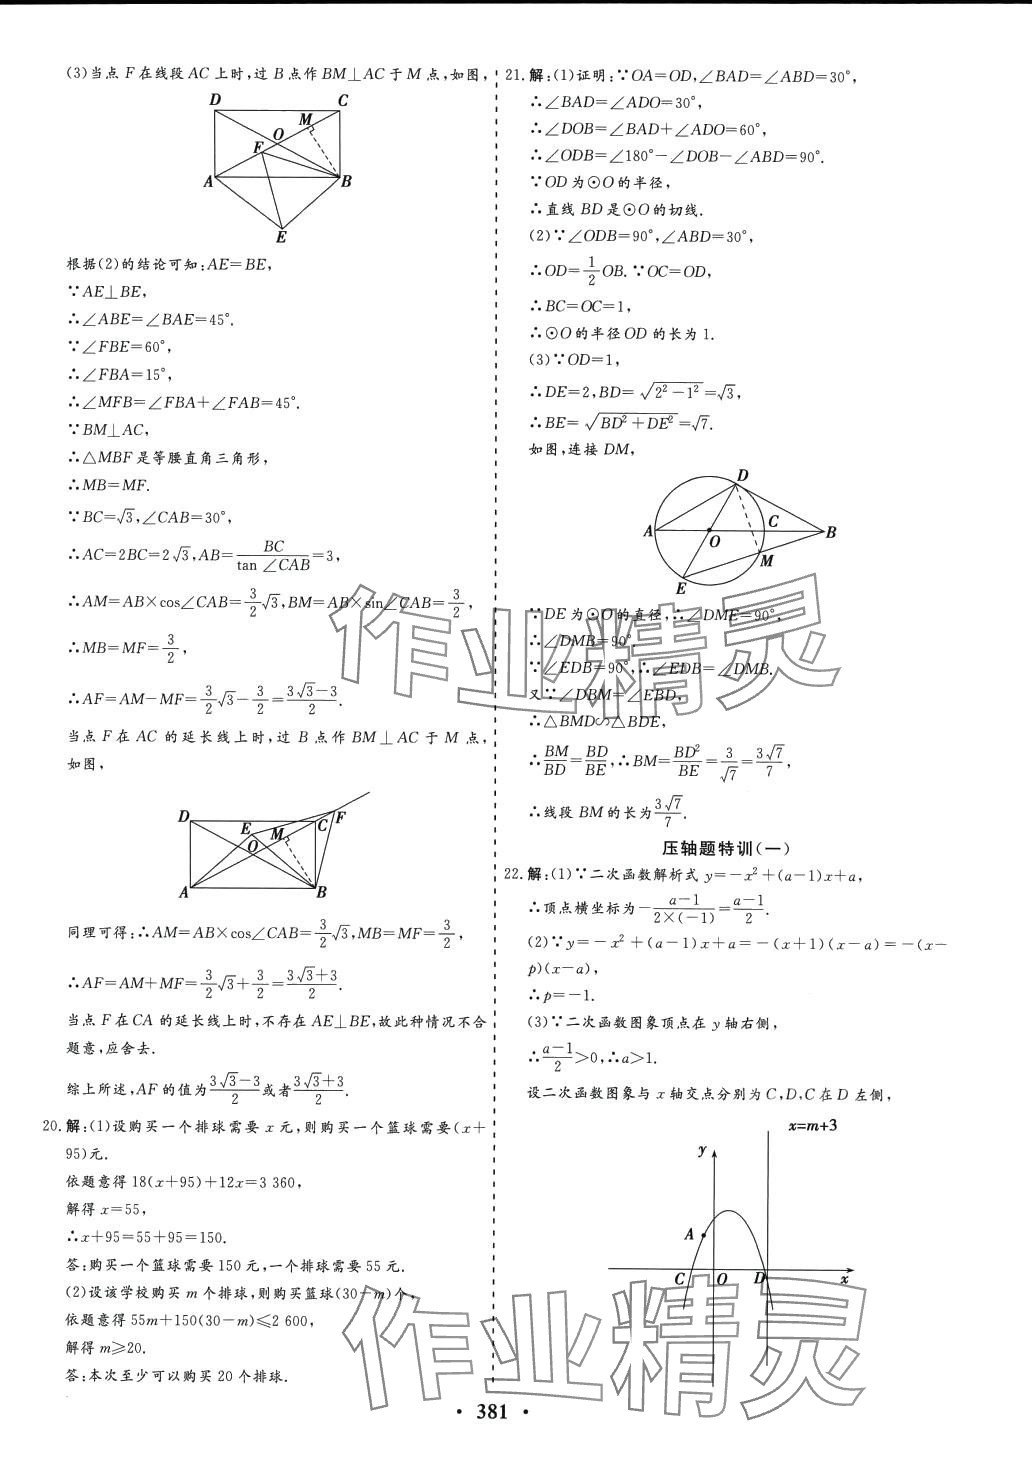 (3)当点 F 在线段 AC 上时,过 B 点作 BM⊥AC 于 M 点,如图,
D C M O F A B E
根据(2)的结论可知:AE=BE,
∵AE⊥BE,
∴∠ABE=∠BAE=45°.
∵∠FBE=60°,
∴∠FBA=15°,
∴∠MFB=∠FBA+∠FAB=45°.
∵BM⊥AC,
∴△MBF 是等腰直角三角形,
∴MB=MF.
∵BC=√3,∠CAB=30°,
∴AC=2BC=2√3,AB=BC/tan ∠CAB=3,
∴AM=AB×cos∠CAB=3/2√3,BM=AB×sin∠CAB=3/2,
∴MB=MF=3/2,
∴AF=AM-MF=3/2√3-3/2=(3√3-3)/2.
当点 F 在 AC 的延长线上时,过 B 点作 BM⊥AC 于 M 点,
如图,
D E M C F O A B
同理可得:∴AM=AB×cos∠CAB=3/2√3,MB=MF=3/2,
∴AF=AM+MF=3/2√3+3/2=(3√3+3)/2.
当点 F 在 CA 的延长线上时,不存在 AE⊥BE,故此种情况不合
题意,应舍去.
综上所述,AF 的值为(3√3-3)/2或者(3√3+3)/2.
20.解:(1)设购买一个排球需要 x 元,则购买一个篮球需要(x+
95)元.
依题意得 18(x+95)+12x=3 360,
解得 x=55,
∴x+95=55+95=150.
答:购买一个篮球需要 150 元,一个排球需要 55 元.
(2)设该学校购买 m 个排球,则购买篮球(30-m)个,
依题意得 55m+150(30-m)≤2 600,
解得 m≥20.
答:本次至少可以购买 20 个排球.
21.解:(1)证明:∵OA=OD,∠BAD=∠ABD=30°,
∴∠BAD=∠ADO=30°,
∴∠DOB=∠BAD+∠ADO=60°,
∴∠ODB=∠180°-∠DOB-∠ABD=90°.
∵OD 为⊙O 的半径,
∴直线 BD 是⊙O 的切线.
(2)∵∠ODB=90°,∠ABD=30°,
∴OD=1/2OB.∵OC=OD,
∴BC=OC=1,
∴⊙O 的半径 OD 的长为 1.
(3)∵OD=1,
∴DE=2,BD=√(2²-1²)=√3,
∴BE=√(BD²+DE²)=√7.
如图,连接 DM,
D A O C B M E
∵DE 为⊙O 的直径,∴∠DME=90°,
∴∠DMB=90°.
∵∠EDB=90°,∴∠EDB=∠DMB.
又∵∠DBM=∠EBD,
∴△BMD∽△BDE,
∴BM/BD=BD/BE,∴BM=BD²/BE=3/√7=3√7/7,
∴线段 BM 的长为3√7/7.
压轴题特训(一)
22.解:(1)∵二次函数解析式 y=-x²+(a-1)x+a,
∴顶点横坐标为-(a-1)/(2×(-1))=(a-1)/2.
(2)∵y=-x²+(a-1)x+a=-(x+1)(x-a)=-(x-
p)(x-a),
∴p=-1.
(3)∵二次函数图象顶点在 y 轴右侧,
∴(a-1)/2>0,∴a>1.
设二次函数图象与 x 轴交点分别为 C,D,C 在 D 左侧,
x=m+3
y A C O D x
作业精灵
作业精灵
• 381 •